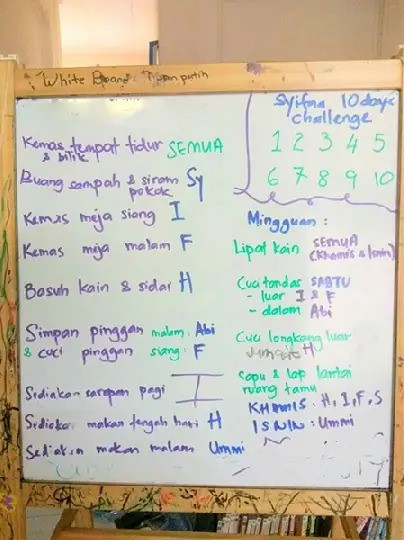 White Board : Papan putih
Syifaa 10 days
challenge
1 2 3 4 5
6 7 8 9 10
Kemas tempat tidur SEMUA
& bilik
Buang sampah & siram Sy
pokok
Kemas meja siang I
Kemas meja malam F
Basuh kain & sidai H
Simpan pinggan malam : Abi
& cuci pinggan siang : F
Sediakan sarapan pagi I
Sediakan makan tengah hari H
Sediakan makan malam Ummi
Mingguan :
Lipat kain SEMUA
(Khamis & Isnin)
Cuci tandas SABTU
- luar I & F
- dalam Abi
Cuci longkang luar
H
Sapu & lap lantai
ruang tamu
KHAMIS : H, I, F, S
ISNIN : Ummi